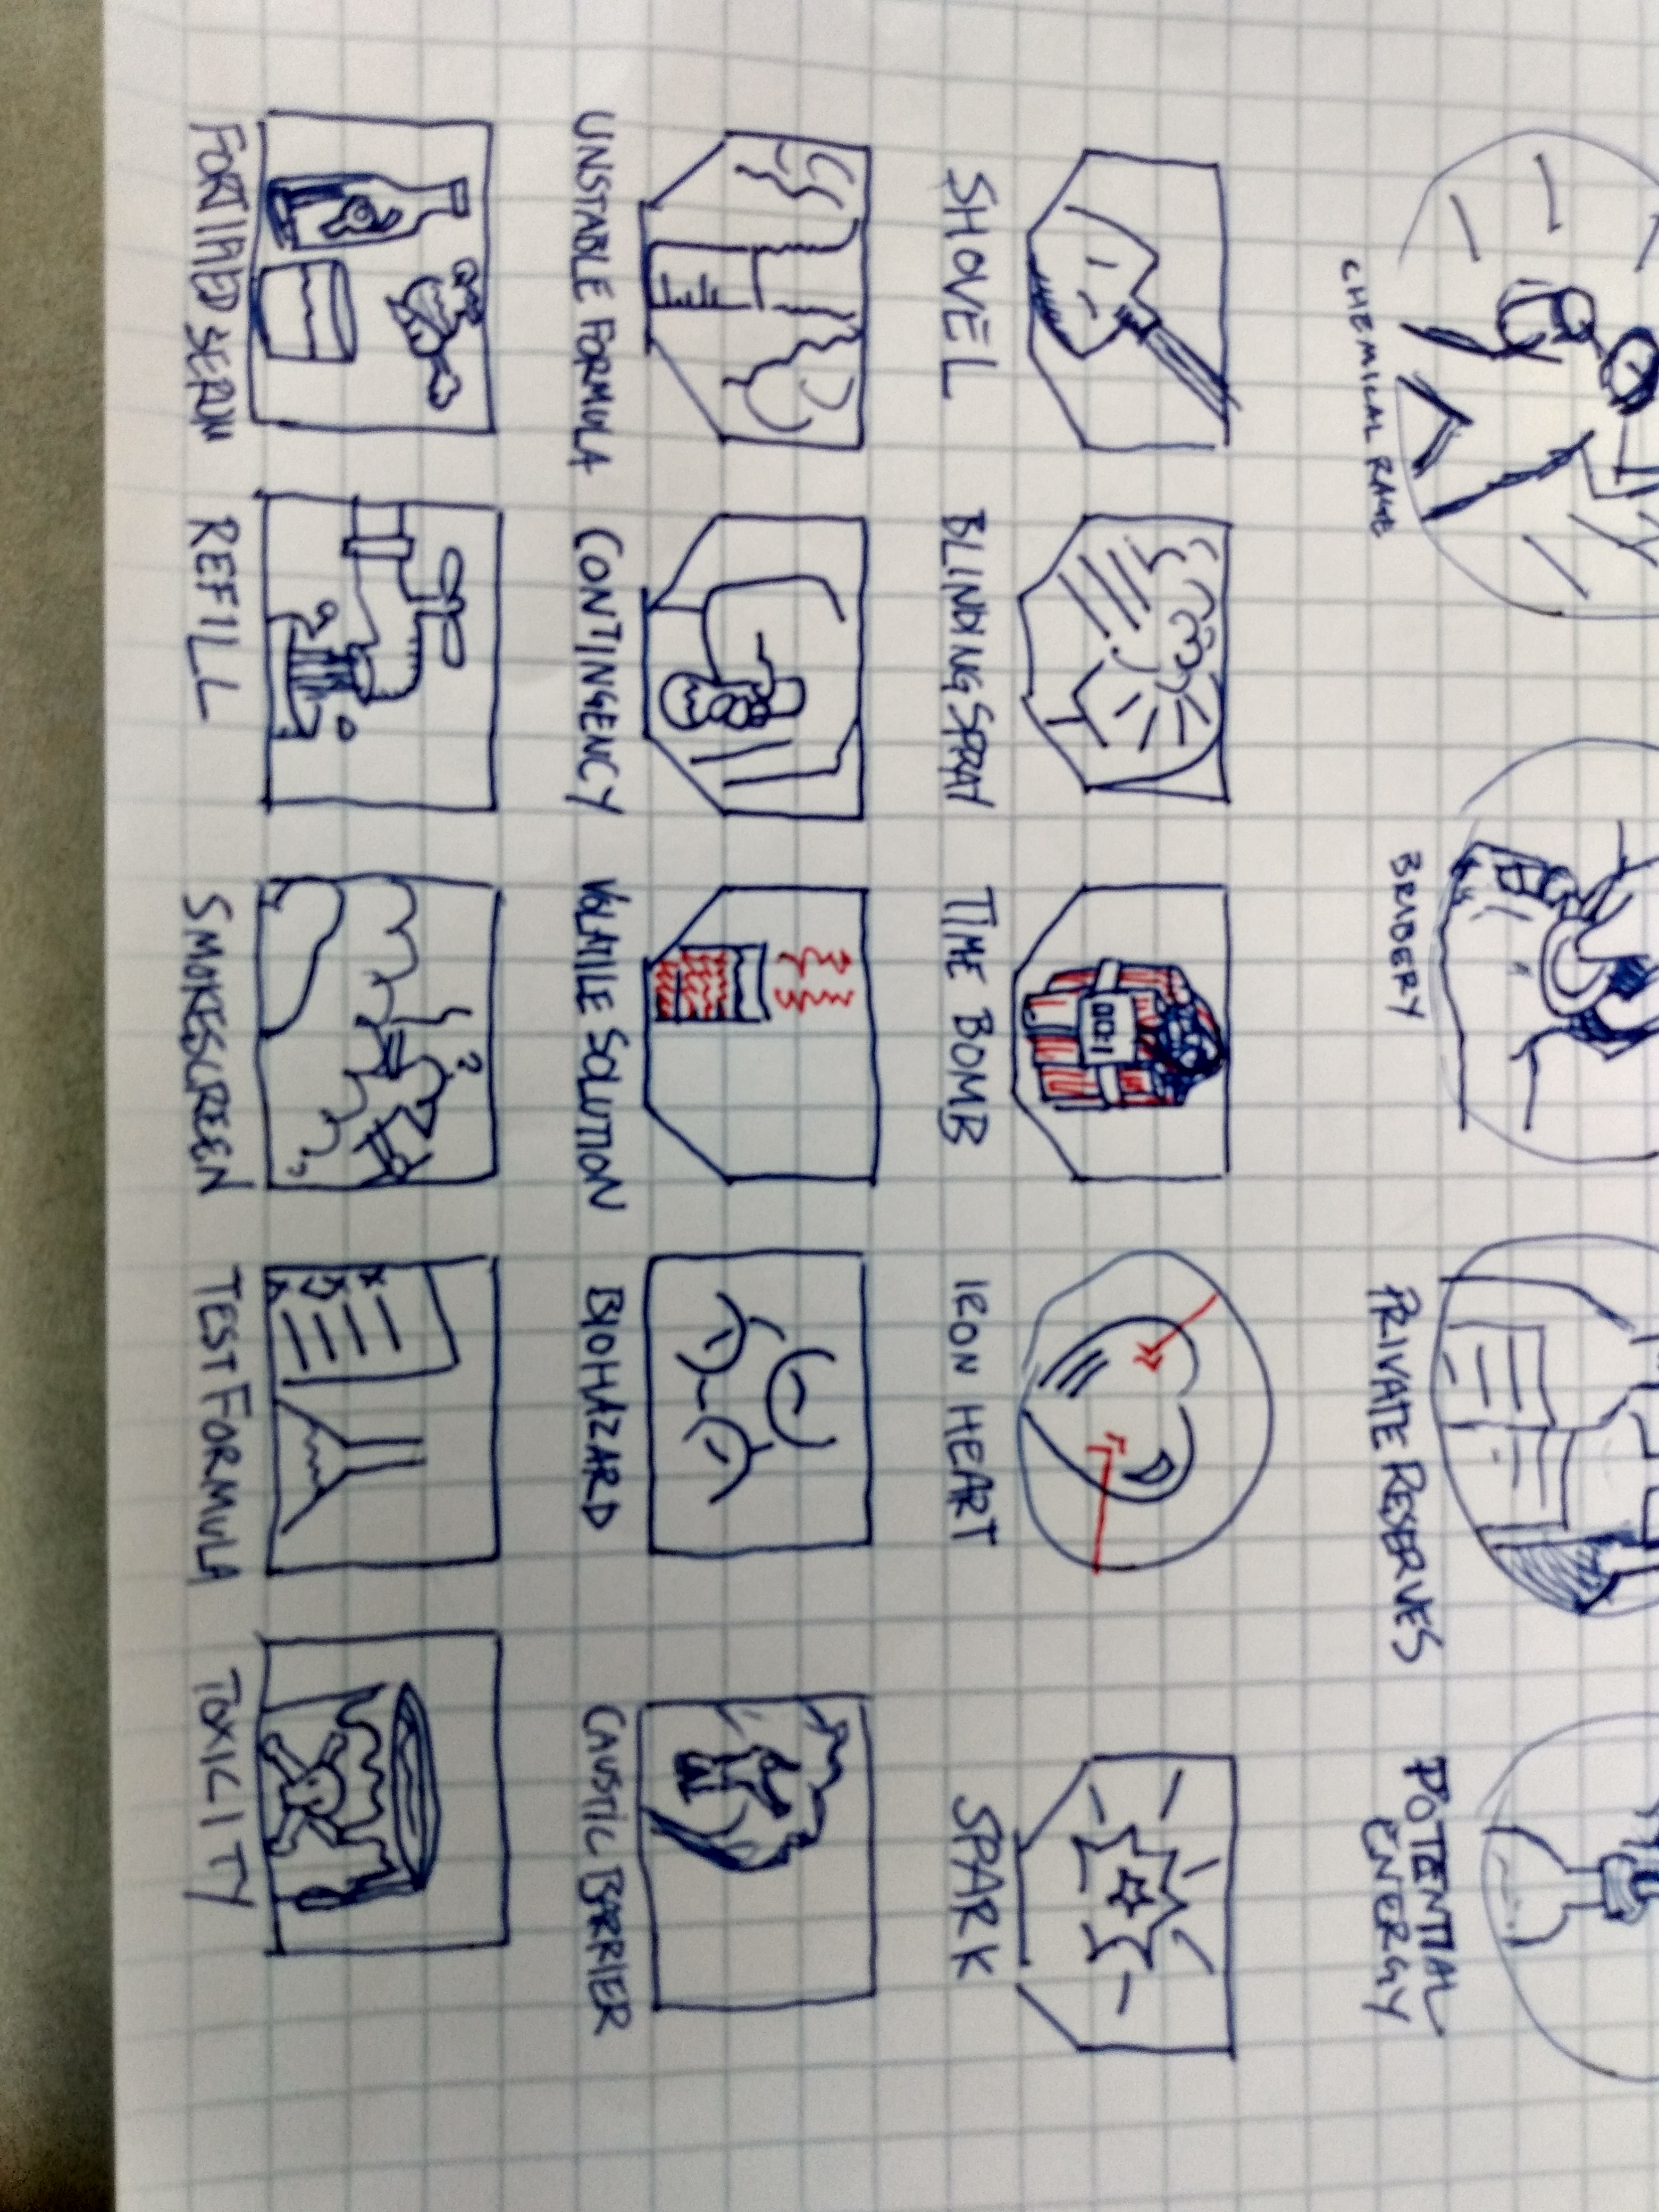 CHEMICAL RAGE
BRIBERY
PRIVATE RESERVES
POTENTIAL
ENERGY
00:1
SHOVEL
BLINDING SPRAY
TIME BOMB
IRON HEART
SPARK
UNSTABLE FORMULA
CONTINGENCY
VOLATILE SOLUTION
BIOHAZARD
CAUSTIC BARRIER
?
FORTIFIED SERUM
REFILL
SMOKESCREEN
TEST FORMULA
TOXICITY